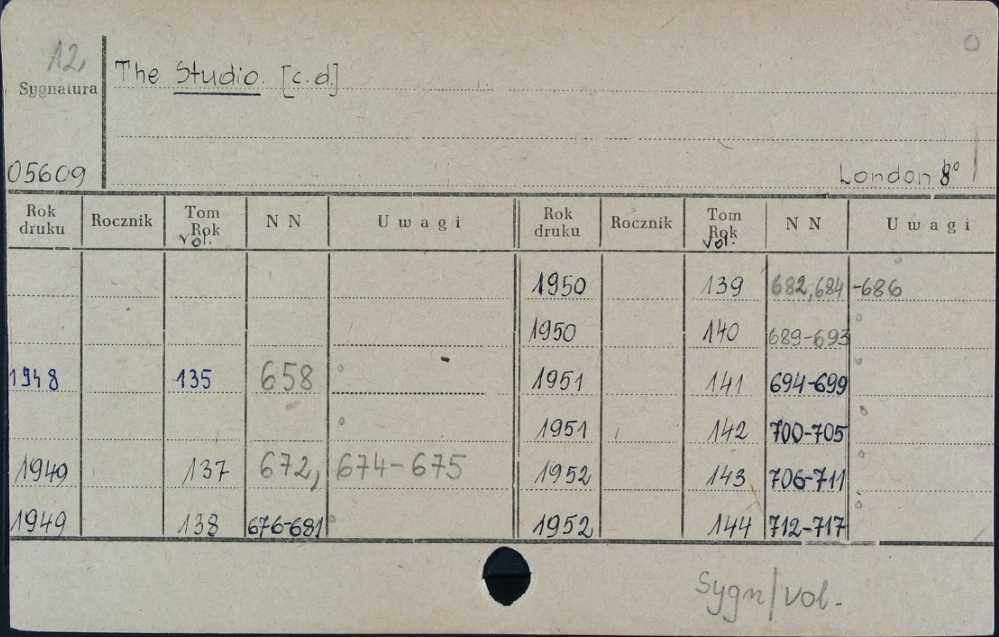 12,
The Studio. [c.d.]
Sygnatura
05609
London 8°
Rok druku Rocznik Tom Rok vol. N N Uwagi Rok druku Rocznik Tom Rok vol. N N Uwagi
1950 139 682,684-686
1950 140 689-693
1948 135 658 1951 141 694-699
1951 142 700-705
1949 137 672, 674-675 1952 143 706-711
1949 138 676-681 1952 144 712-717
Sygn/vol.